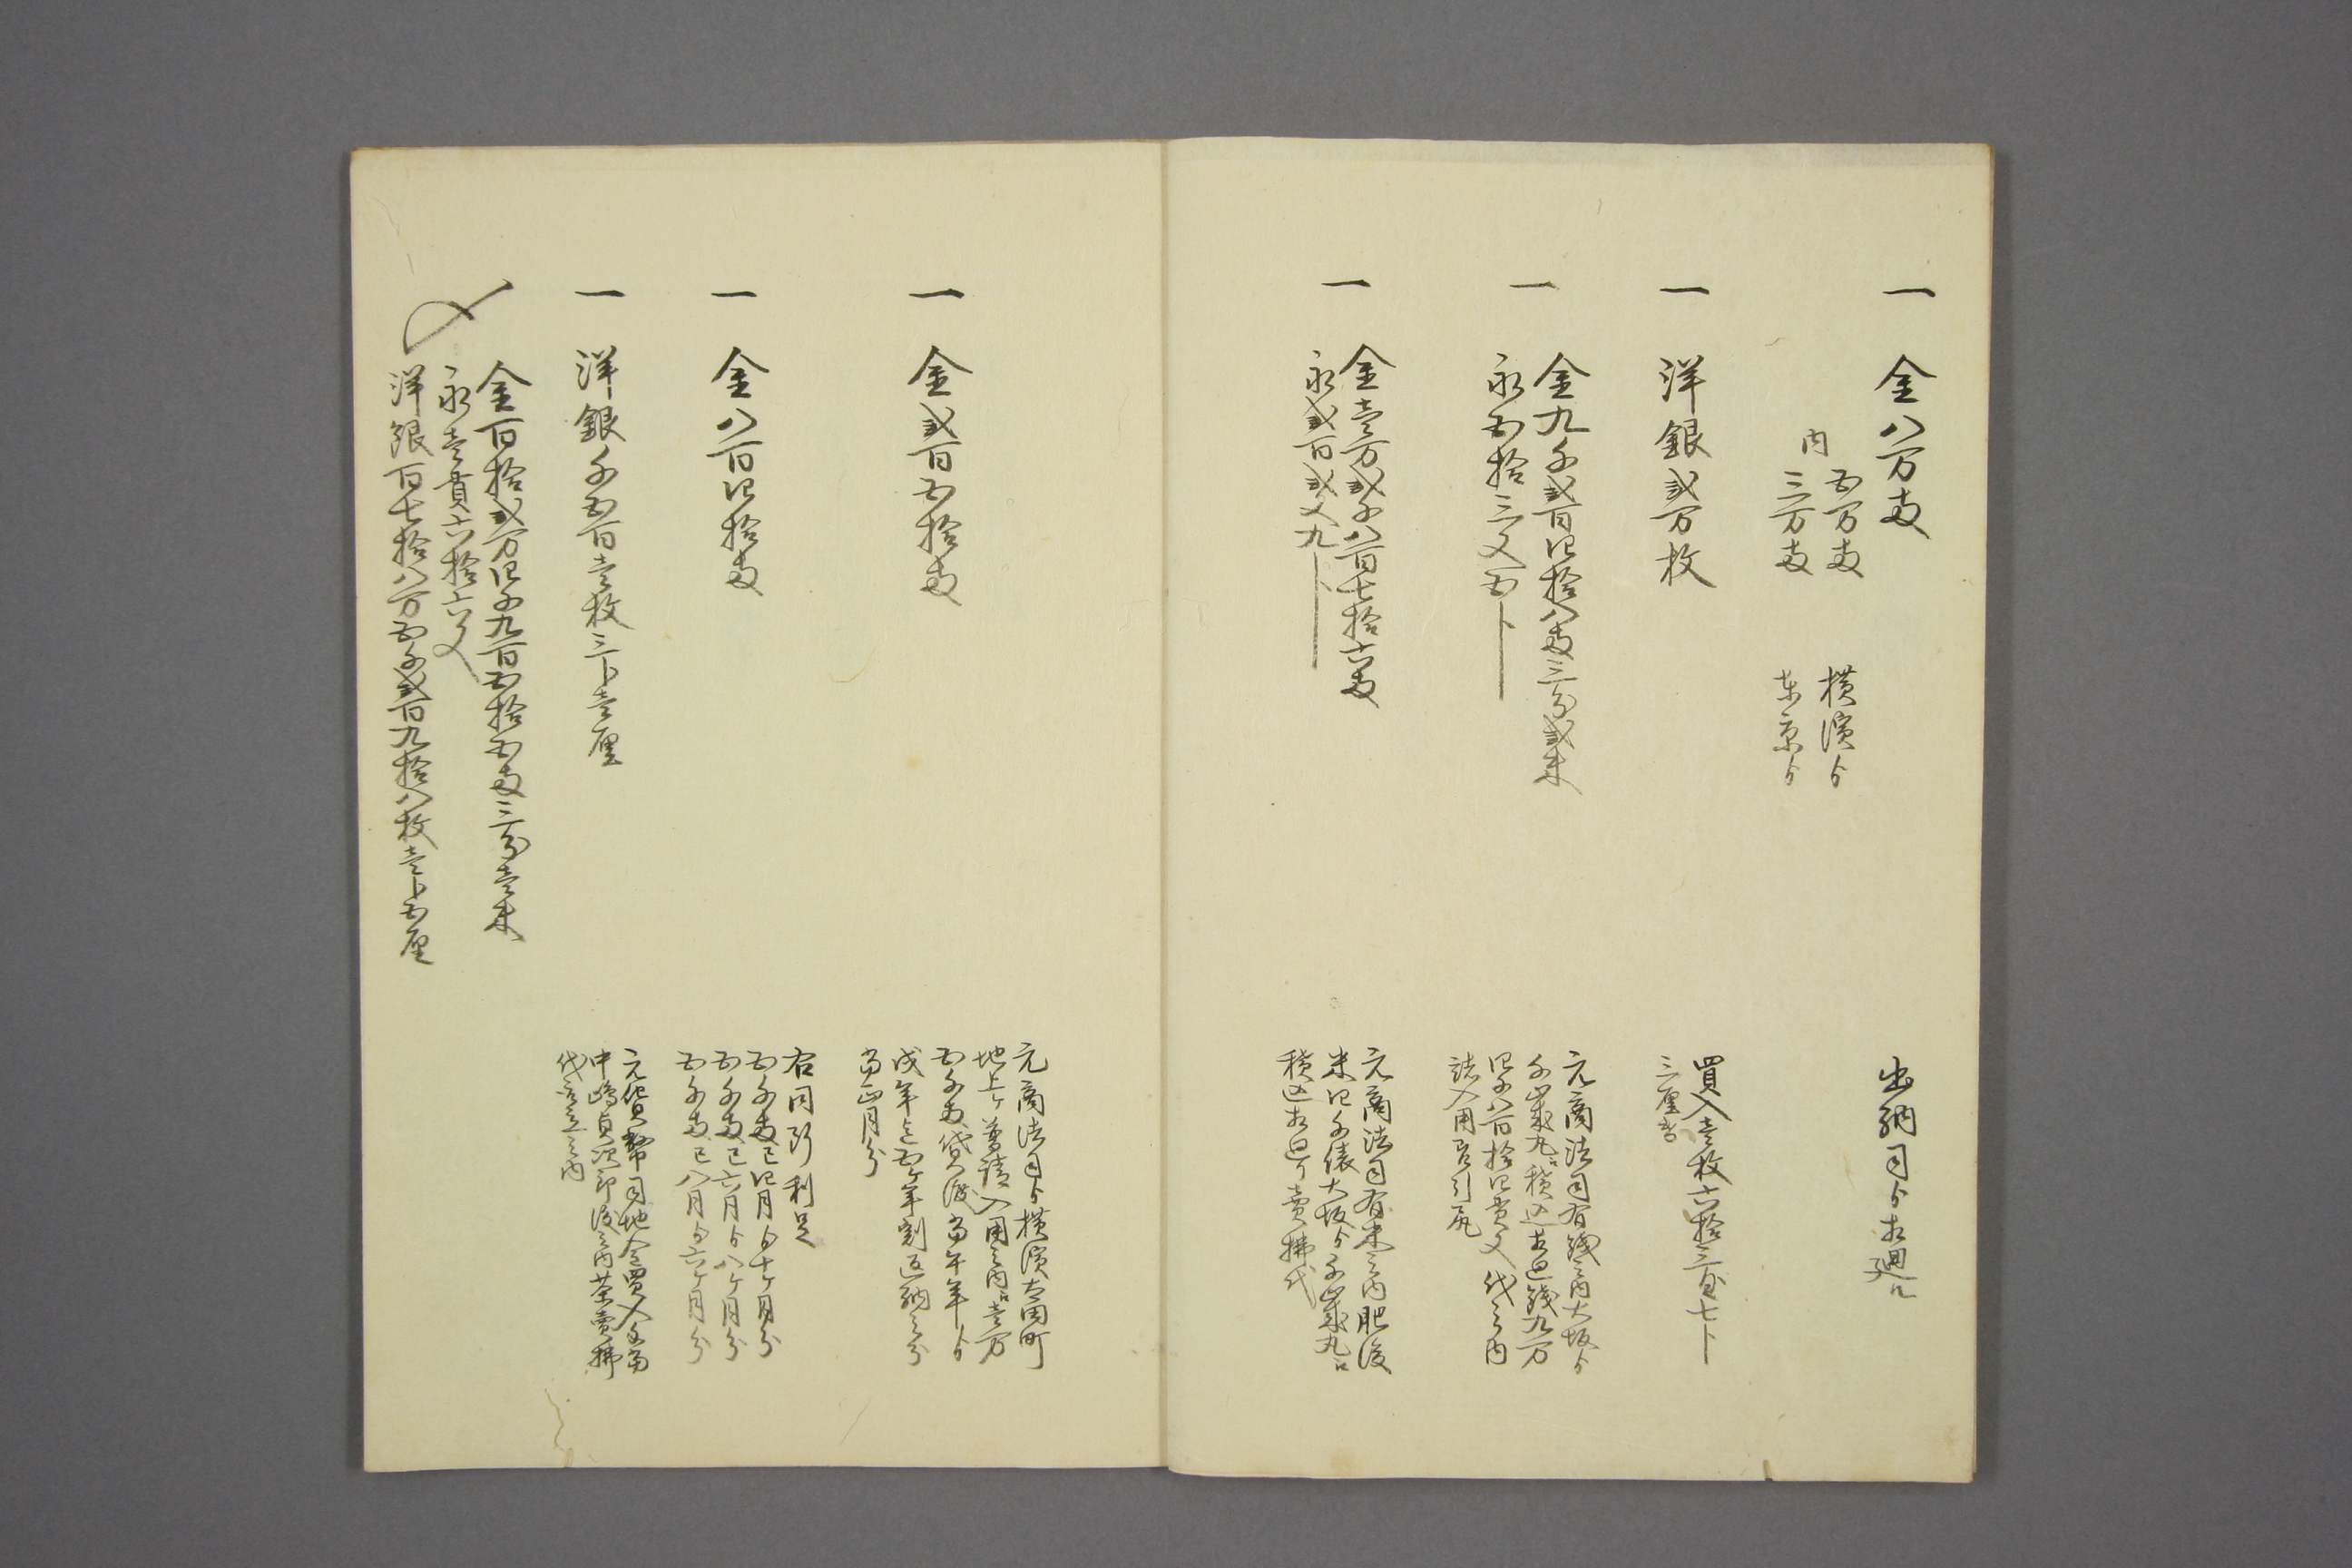 一 金八万両
内 五万両 横濱ゟ
三万両 東京ゟ
出納司ゟ相廻ル
一 洋銀弐万枚
買入壱枚六拾三匁七卜
三厘替
一 金九千弐百四拾八両三分弐朱
永五拾三文五卜
元商法司有銭之内大坂ゟ
千歳丸江積込相廻銭九万
四千八百拾四貫文代之内
諸入用差引尻
一 金壱万弐千八百七拾六両
永弐百弐文九卜
元商法司有米之内肥後
米四千俵大坂ゟ千歳丸江
積込相廻り売拂代
一 金弐百五拾両
元商法司ゟ横濱太田町
地上ケ普請入用之内江壱万
五千両貸渡当午年ゟ
戌年迄五ケ年割返納之分
当正月分
一 金八百四拾両
右同断利足
五千両 巳四月ゟ十ケ月分
五千両 巳六月ゟ八ケ月分
五千両 巳八月ゟ六ケ月分
一 洋銀千五百壱枚三卜壱厘
元貨幣司地金買入金
中嶋貞次郎渡之内茶売拂
代之内
〆 金百拾弐万四千九百五拾五両三分壱朱
永壱貫六拾六文
洋銀百七拾八万五千弐百九拾八枚壱卜五厘